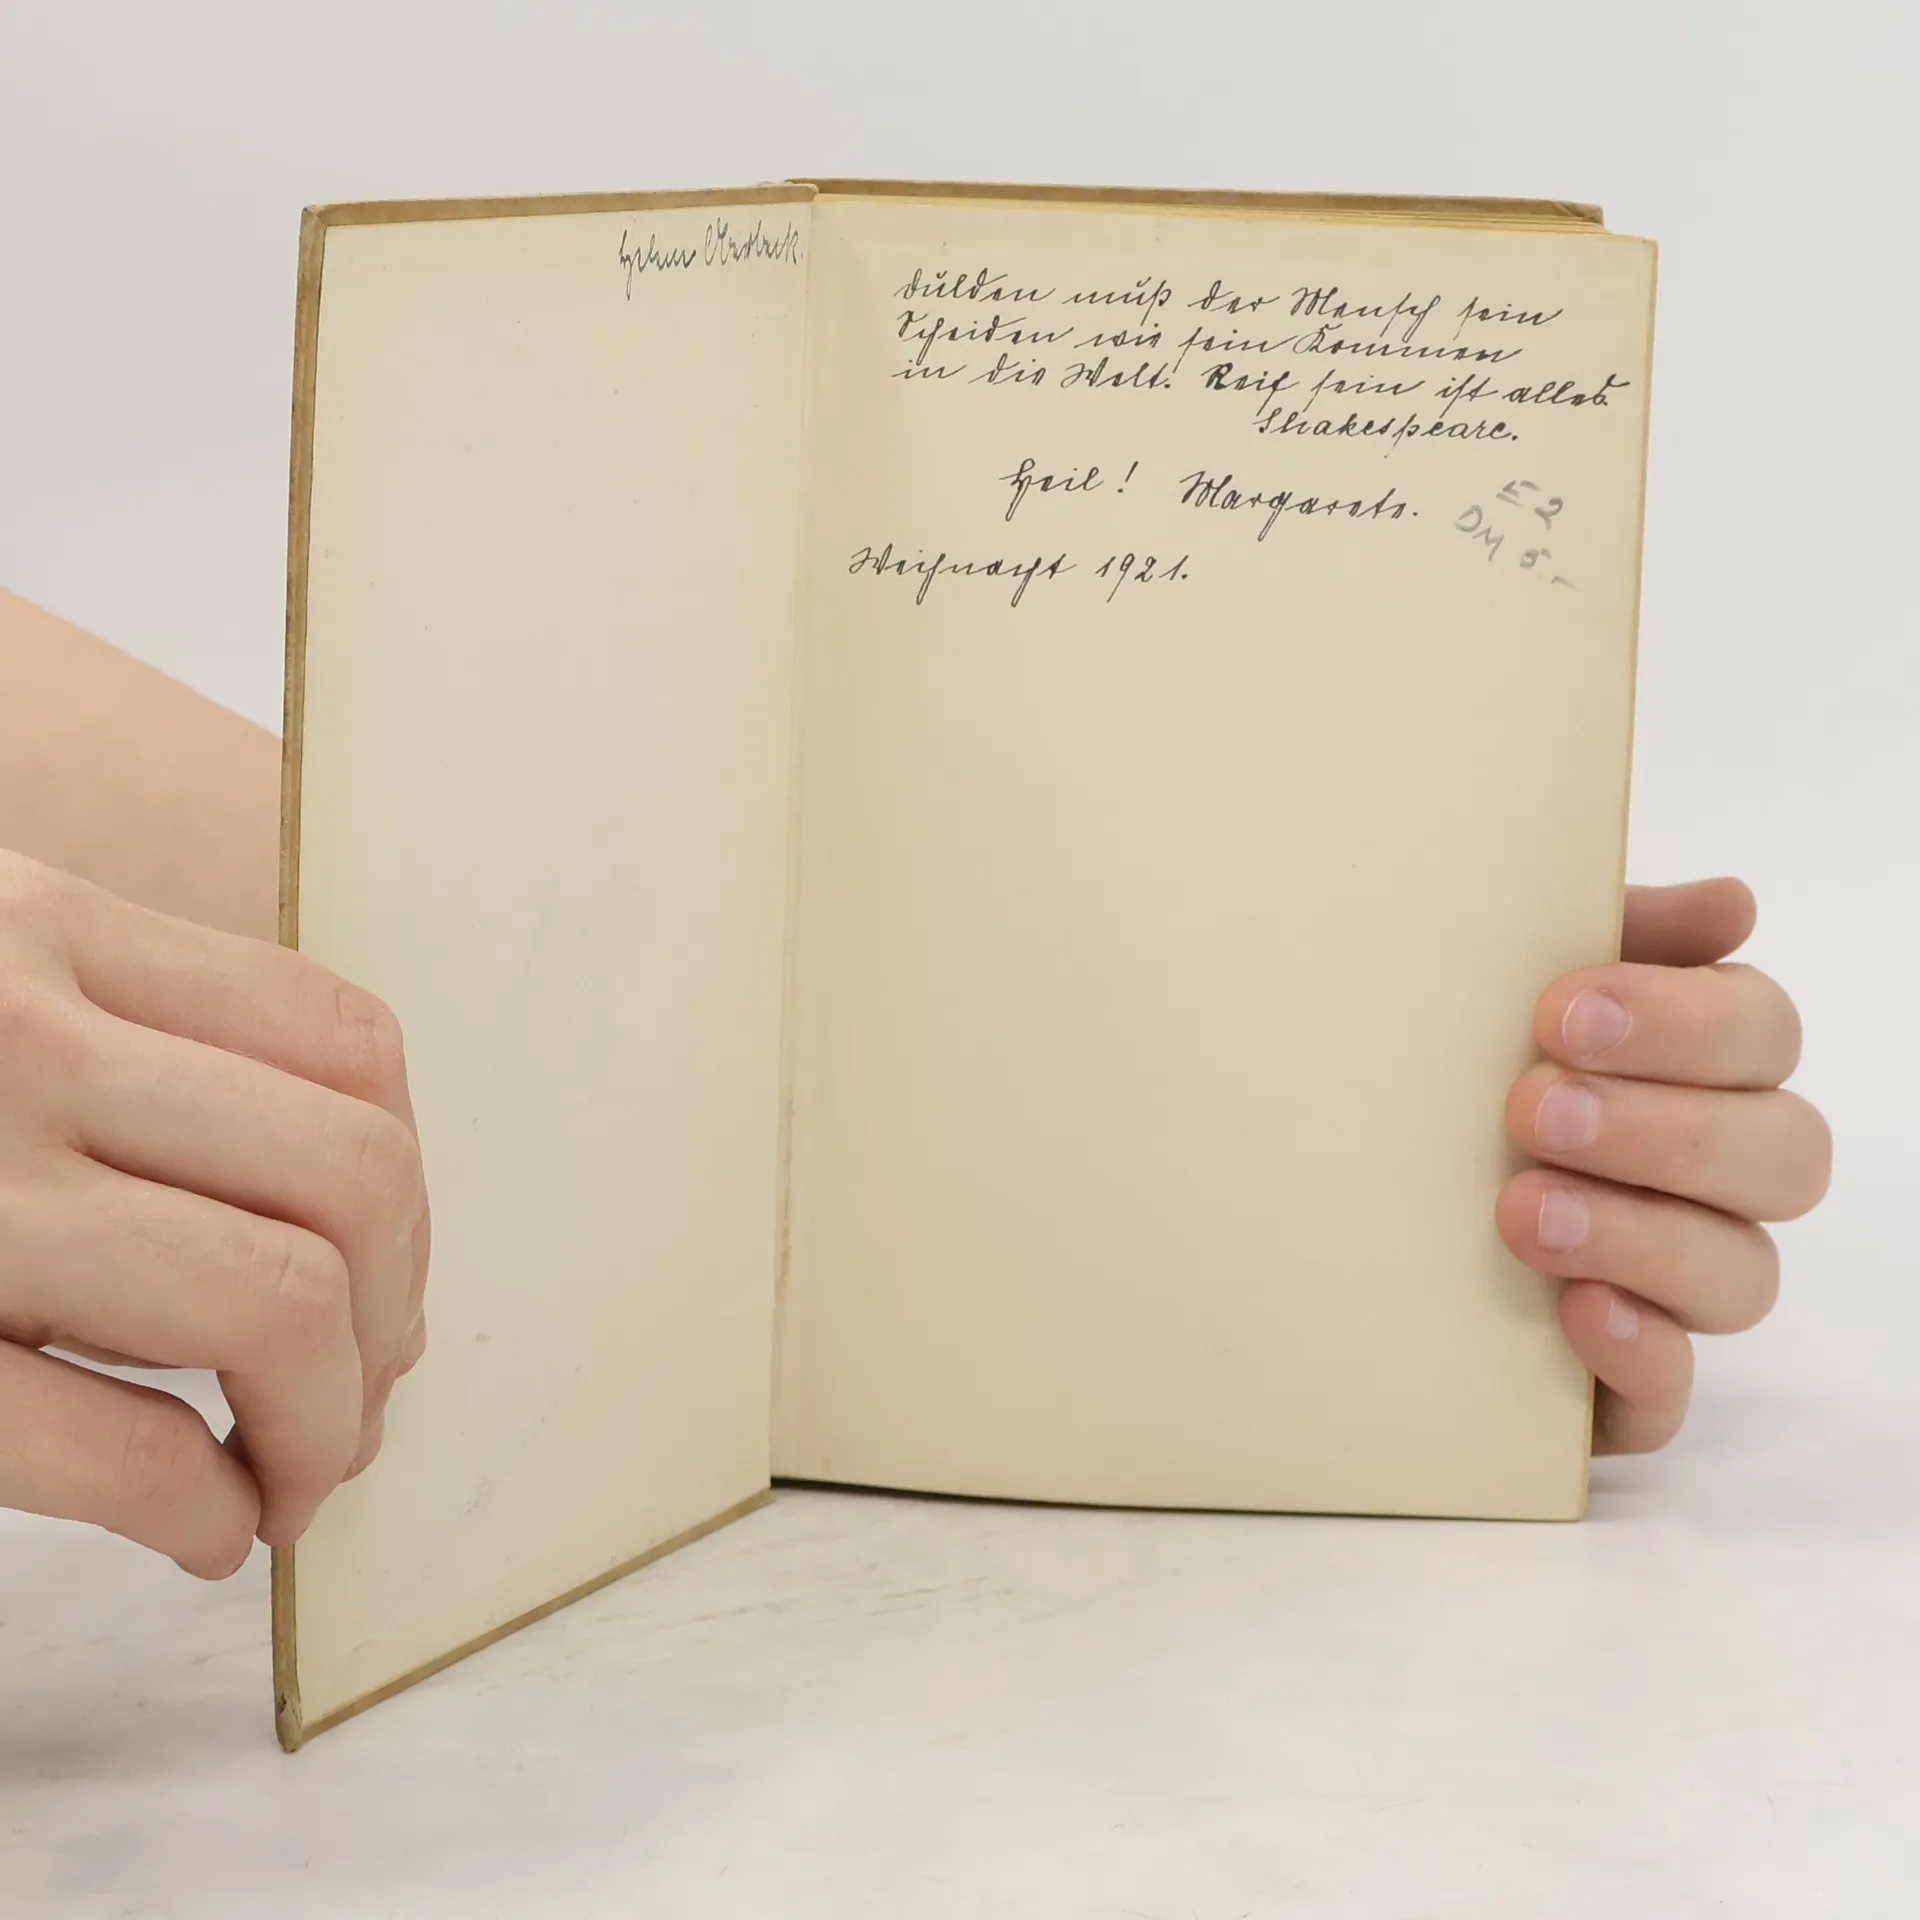 Overbeck.
Dulden muß der Mensch sein
Scheiden wie sein Kommen
in die Welt. Reif sein ist alles.
Shakespeare.
Heil! Margarete.
Weihnacht 1921.
2
DM 8.-